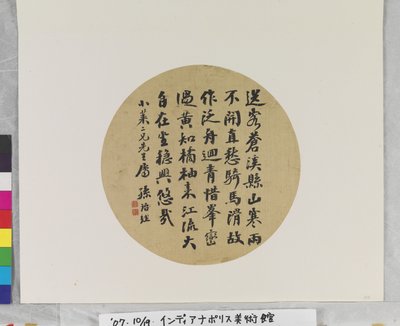 送客蒼溪縣山寒雨
不開直愁騎馬滑故
作泛舟迴青惜峯巒
過黃知橘柚來江流大
自在坐穩興悠哉
小葉二兄先生屬 孫治經
'07.10/19. インディアナポリス美術館